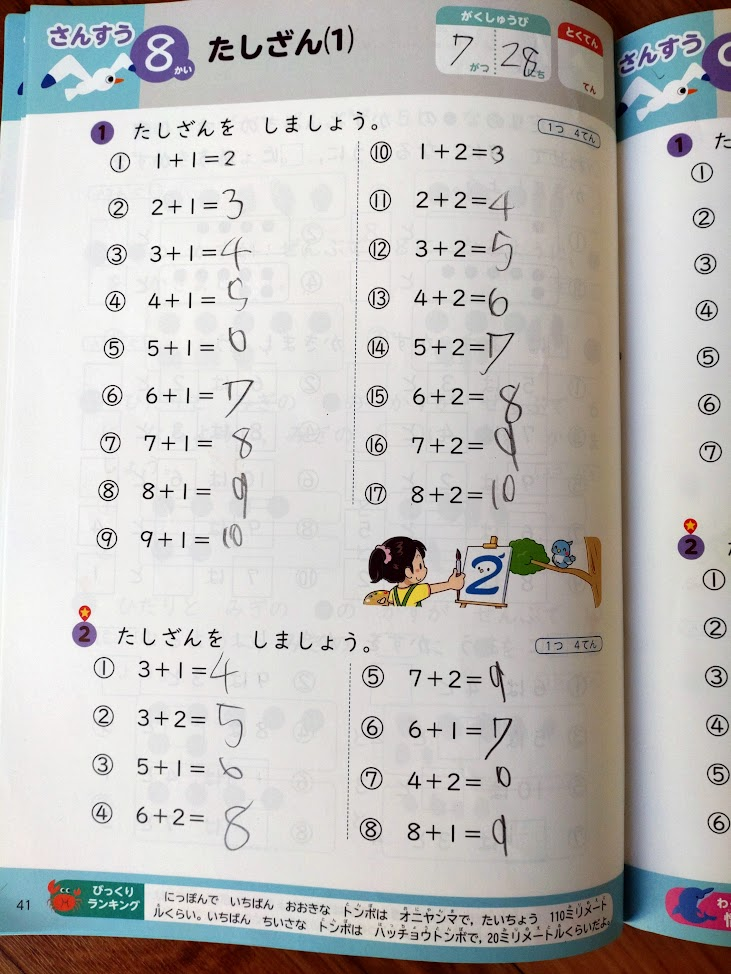 さんすう 8 かい たしざん(1)
がくしゅうび 7 がつ 28 にち
とくてん てん
さんすう
1 たしざんを しましょう。 1つ 4てん
① 1+1=2
② 2+1=3
③ 3+1=4
④ 4+1=5
⑤ 5+1=6
⑥ 6+1=7
⑦ 7+1=8
⑧ 8+1=9
⑨ 9+1=10
⑩ 1+2=3
⑪ 2+2=4
⑫ 3+2=5
⑬ 4+2=6
⑭ 5+2=7
⑮ 6+2=8
⑯ 7+2=9
⑰ 8+2=10
2
2 たしざんを しましょう。 1つ 4てん
① 3+1=4
② 3+2=5
③ 5+1=6
④ 6+2=8
⑤ 7+2=9
⑥ 6+1=7
⑦ 4+2=6
⑧ 8+1=9
41
びっくり
ランキング
にっぽんで いちばん おおきな トンボは オニヤンマで, たいちょう 110ミリメート
ルくらい。いちばん ちいさな トンボは ハッチョウトンボで, 20ミリメートルくらいだよ。
1
①
②
③
④
⑤
⑥
⑦
2
①
②
③
④
⑤
⑥